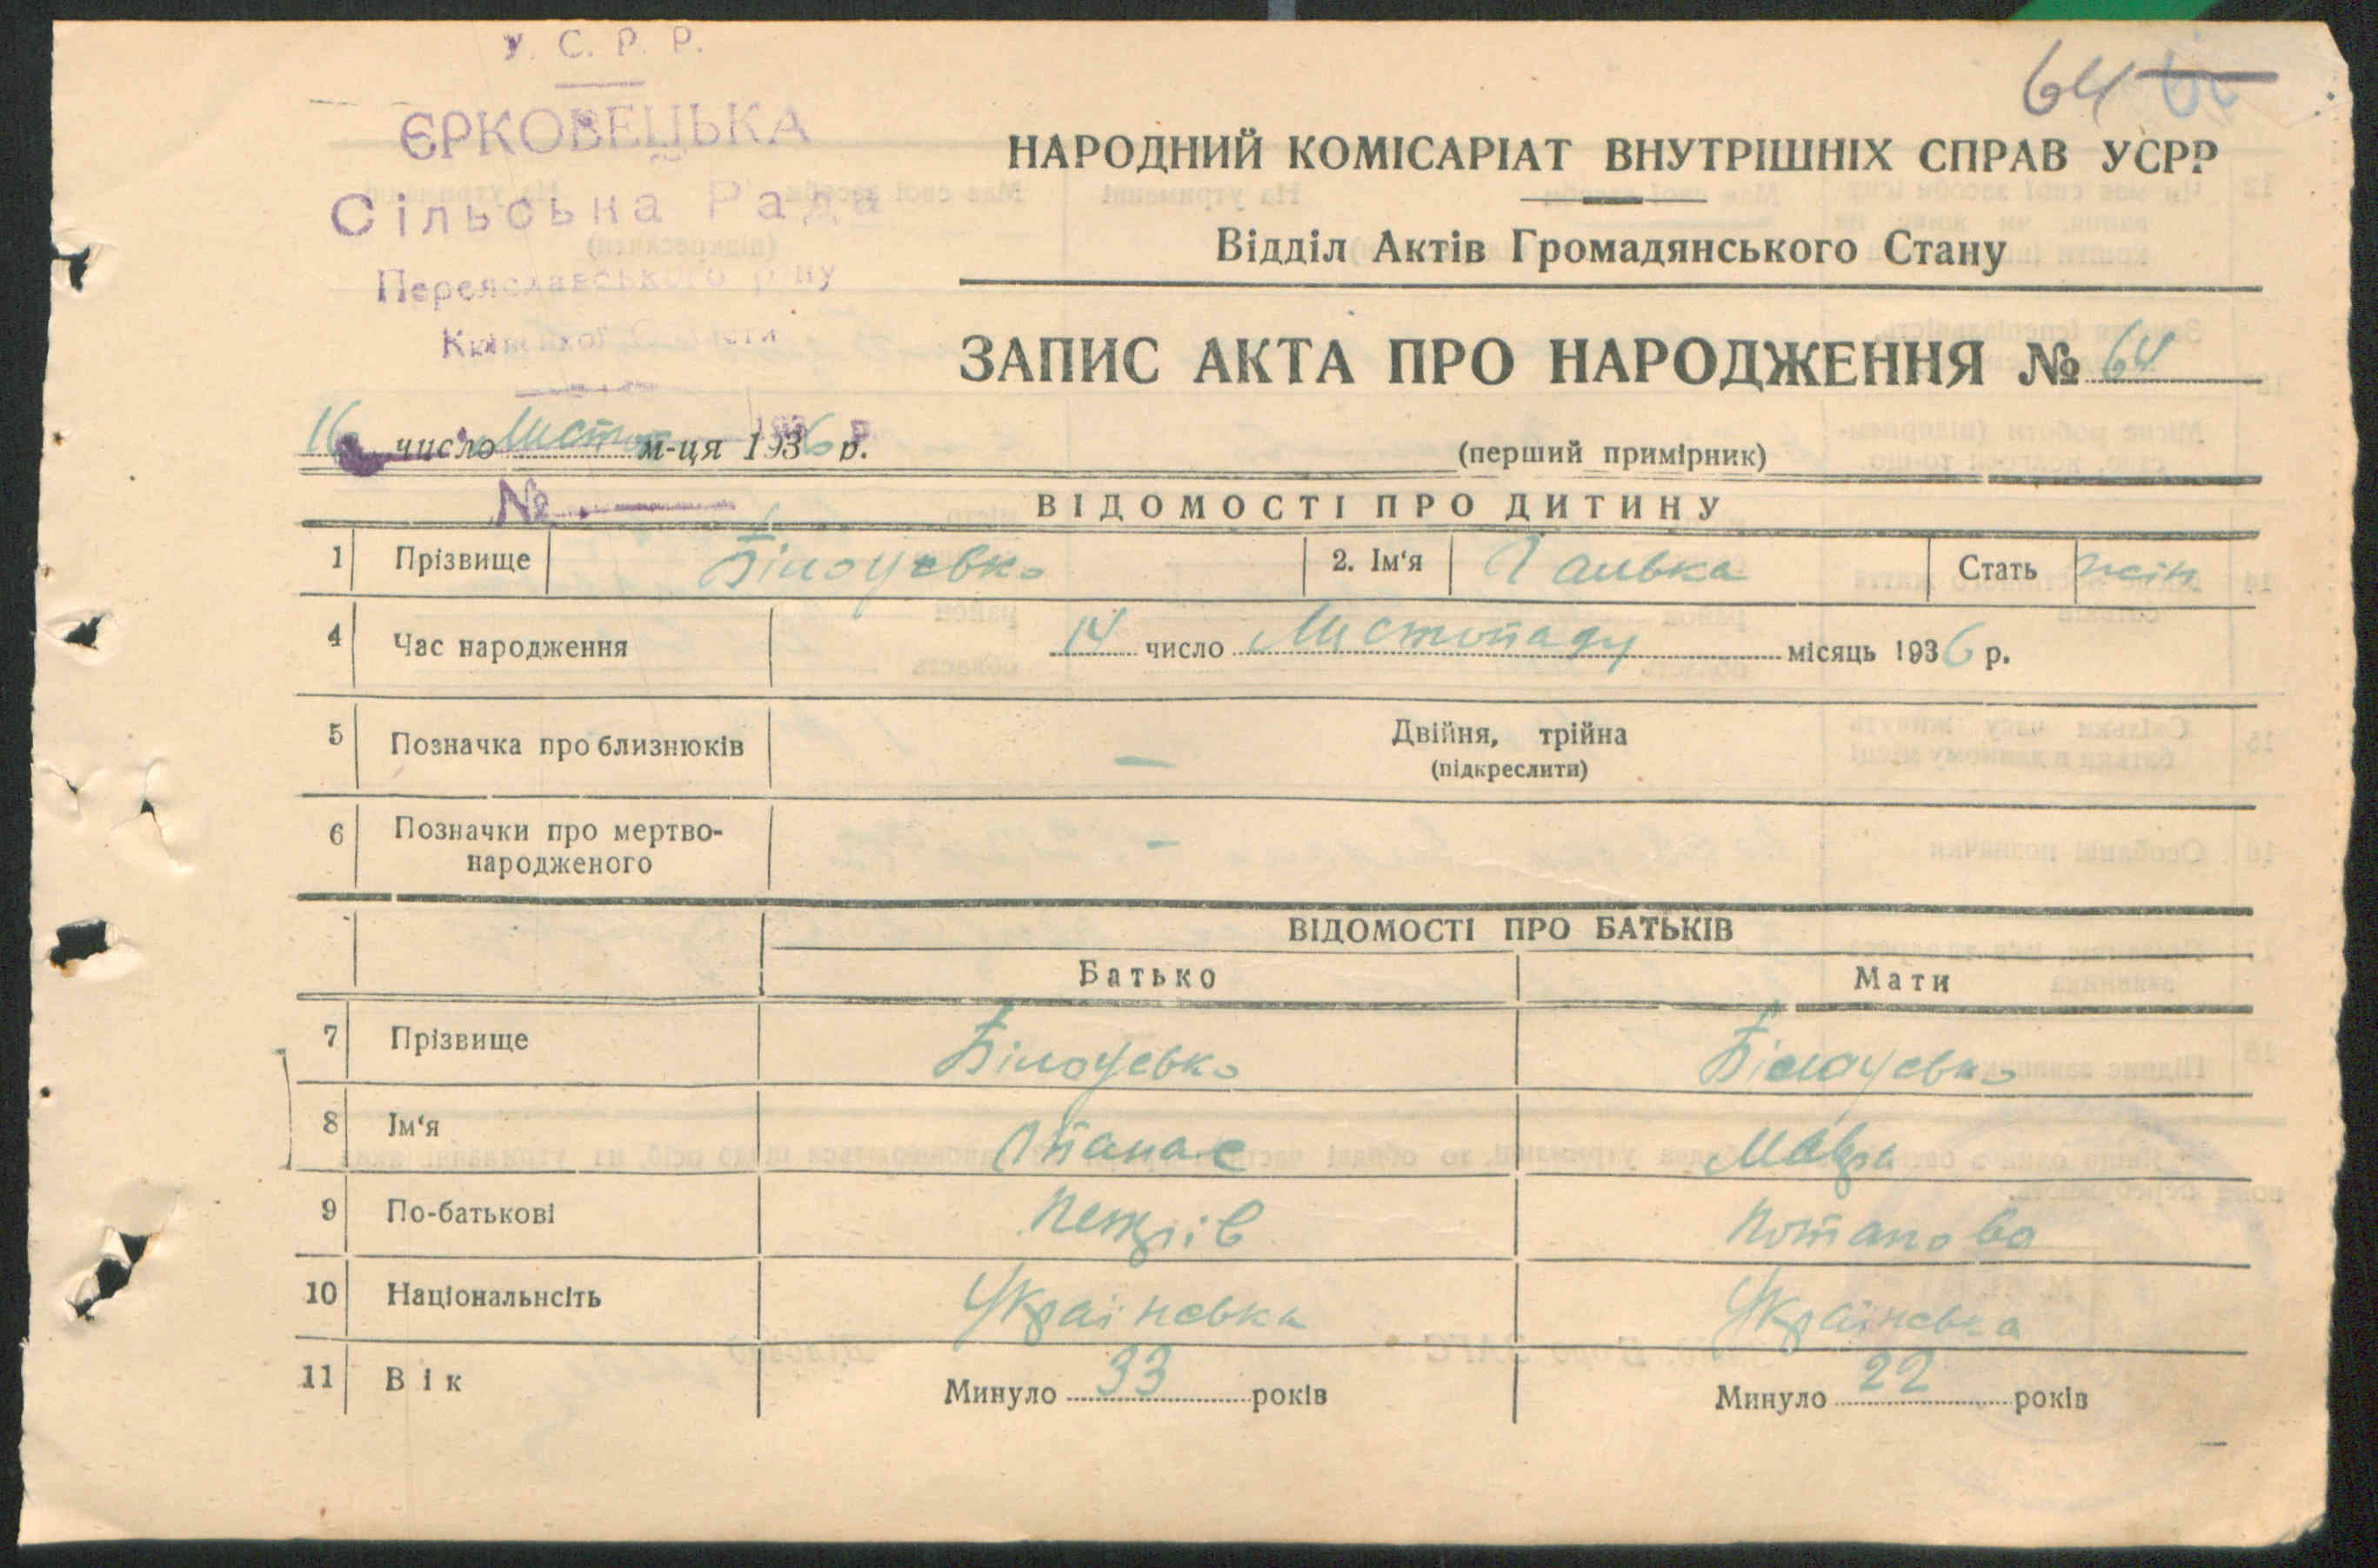 У. С. Р. Р.
ЄРКОВЕЦЬКА
Сільська Рада
Переяславського р-ну
Київської Області
64
НАРОДНИЙ КОМІСАРІАТ ВНУТРІШНІХ СПРАВ УСРР
Відділ Актів Громадянського Стану
ЗАПИС АКТА ПРО НАРОДЖЕННЯ № 64
16 число Листоп м-ця 1936 р.
(перший примірник)
№
ВІДОМОСТІ ПРО ДИТИНУ
1 Прізвище Білоусько 2. Ім'я Галька Стать жін
4 Час народження 14 число Листопаду місяць 1936 р.
5 Позначка про близнюків — Двійня, трійна
(підкреслити)
6 Позначки про мертво-
народженого —
ВІДОМОСТІ ПРО БАТЬКІВ
Батько Мати
7 Прізвище Білоусько Білоусько
8 Ім'я Опанас Мавра
9 По-батькові Петрів Потапова
10 Національнсіть Українська Українська
11 Вік Минуло 33 років Минуло 22 років